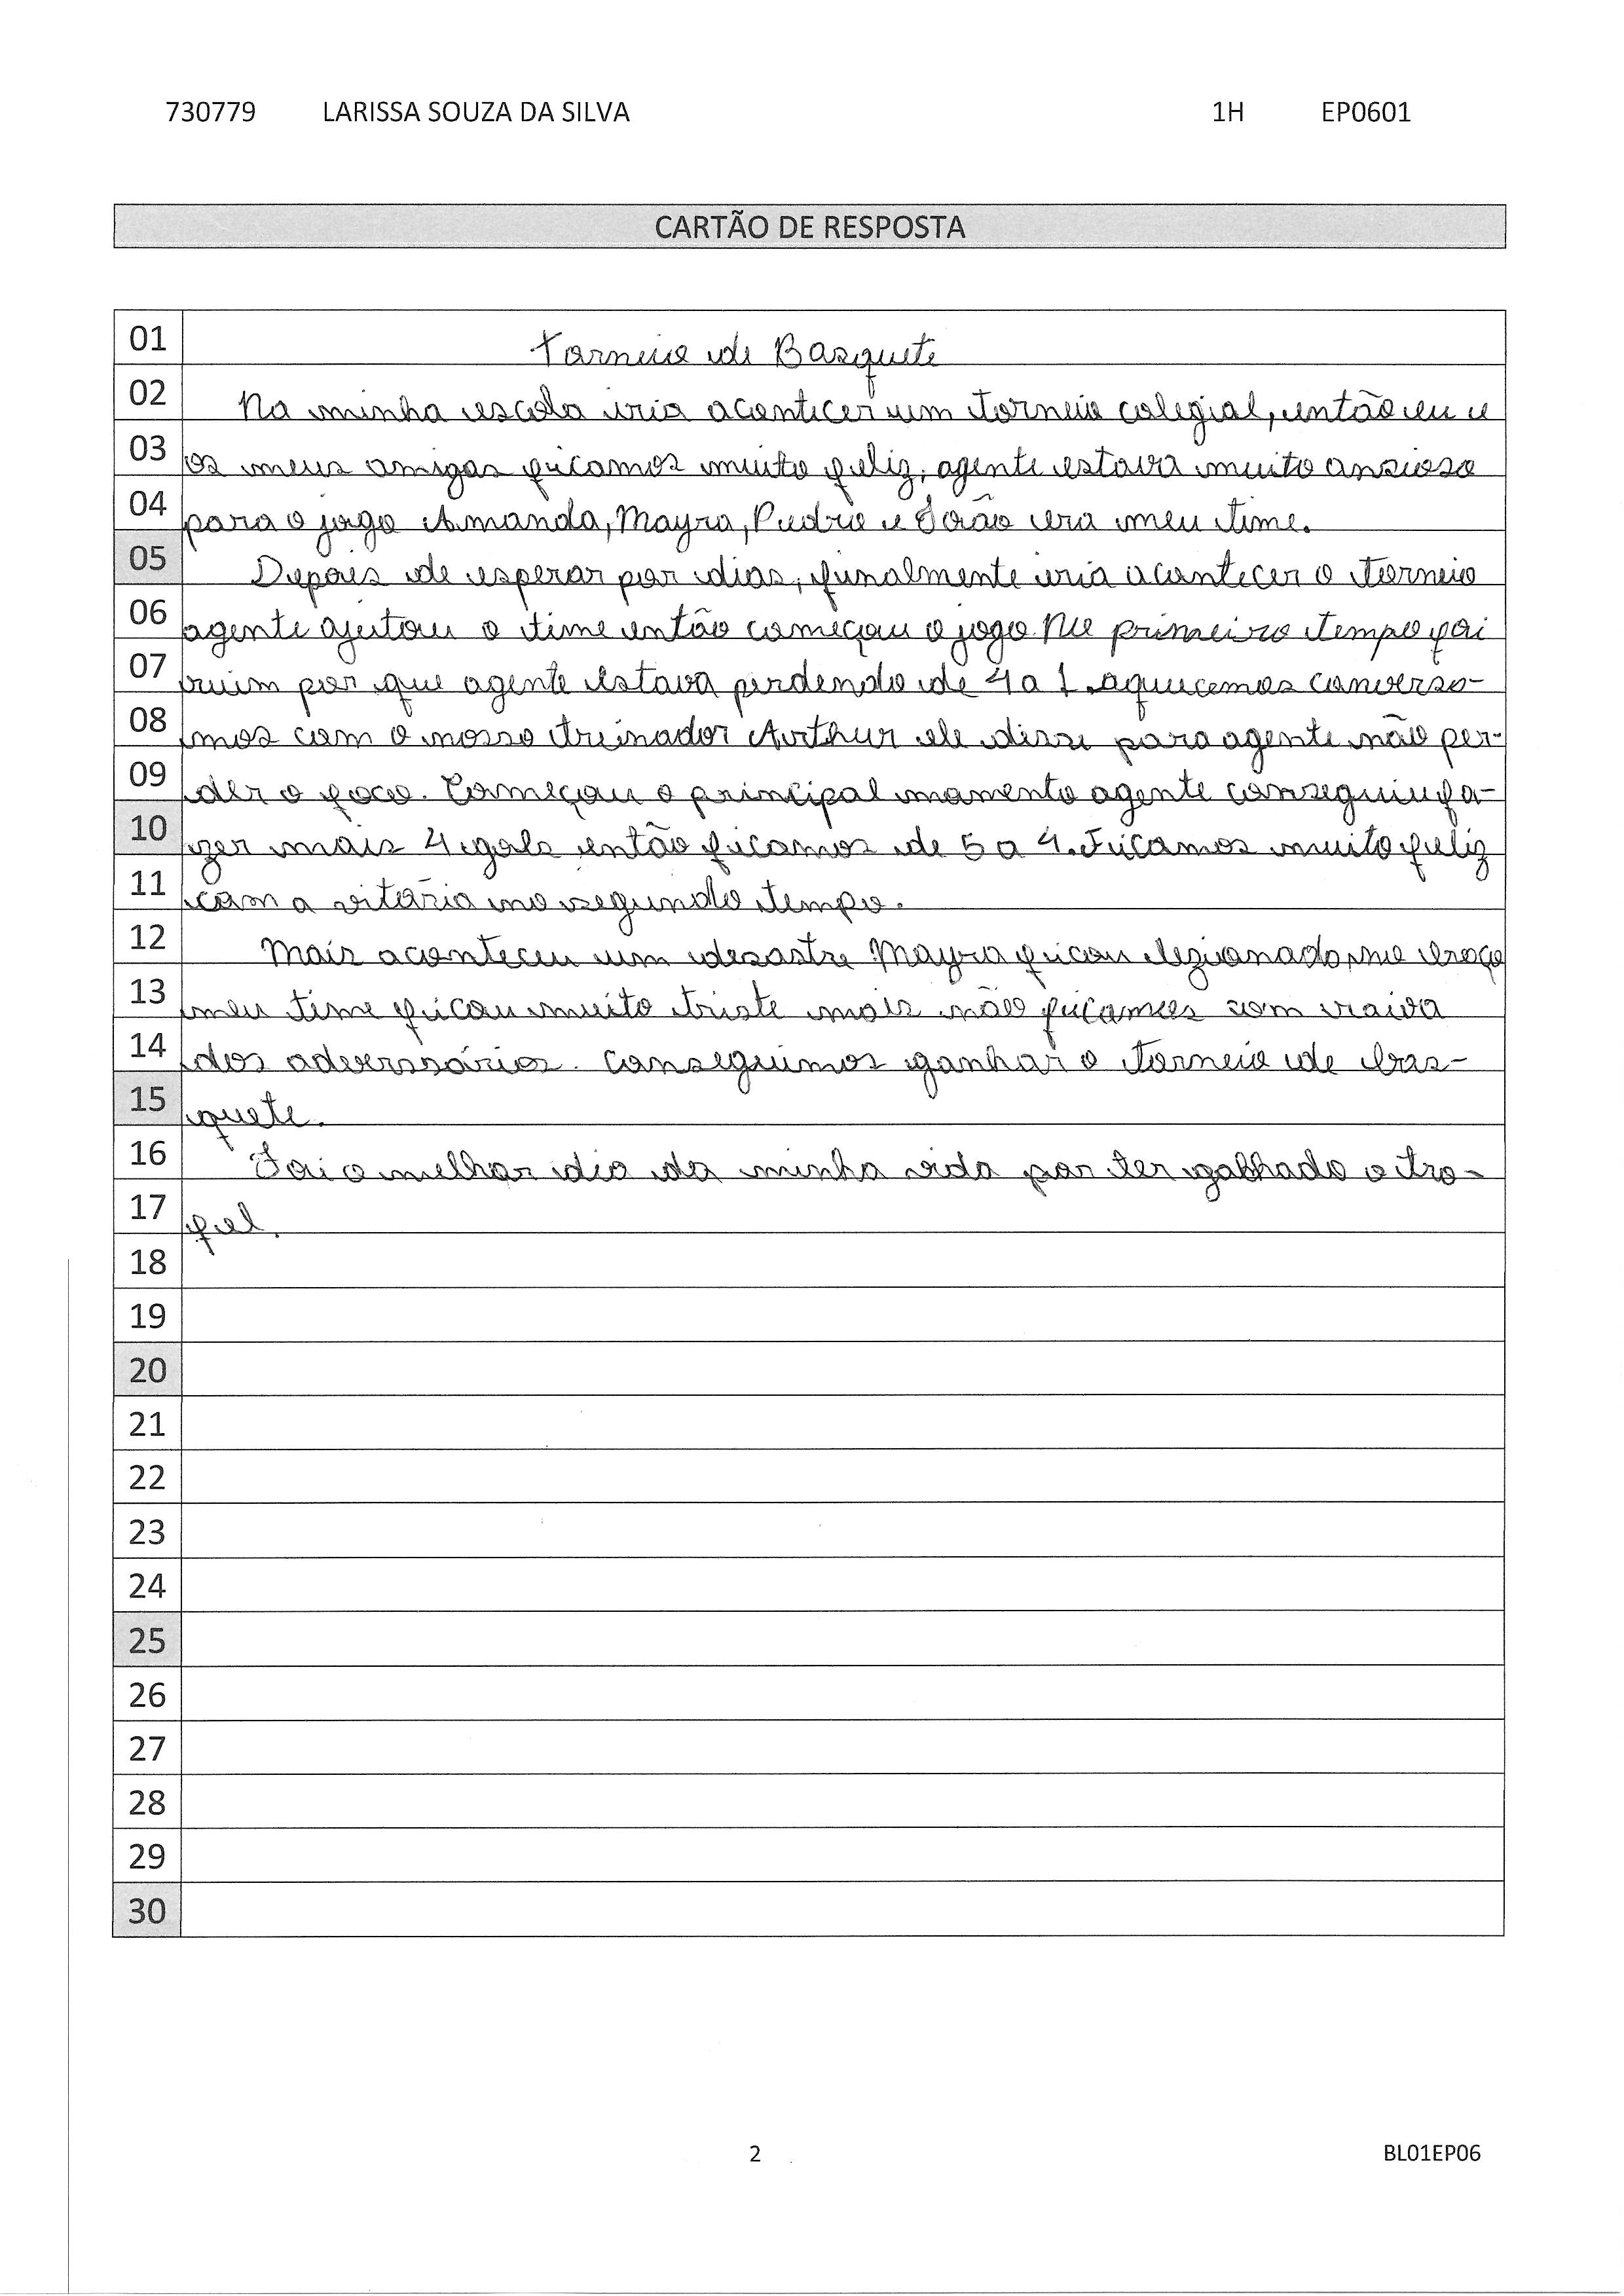 730779 LARISSA SOUZA DA SILVA 1H EP0601
CARTÃO DE RESPOSTA
01 Torneio de Basquete
02 Na minha escola iria acontecer um torneio colegial, então eu e
03 os meus amigos ficamos muito feliz, agente estava muito ansioso
04 para o jogo Amanda, Mayra, Pedro e João era meu time.
05 Depois de esperar por dias, finalmente iria acontecer o torneio
06 agente ajeitou o time então começou o jogo. No primeiro tempo foi
07 ruim por que agente estava perdendo de 4 a 1. aquecemos converso-
08 mos com o nosso treinador Arthur ele disse para agente não per-
09 der o foco. Começou o principal momento agente conseguiu fa-
10 zer mais 4 gols então ficamos de 5 a 4. Ficamos muito feliz
11 com a vitória no segundo tempo.
12 Mais aconteceu um desastre Mayra ficou lezionado no braço
13 meu time ficou muito triste mais não ficamos com raiva
14 dos adverssários. conseguimos ganhar o torneio de bas-
15 quete.
16 Foi o melhor dia da minha vida por ter gabhado o tro-
17 fel.
18
19
20
21
22
23
24
25
26
27
28
29
30
2 BL01EP06